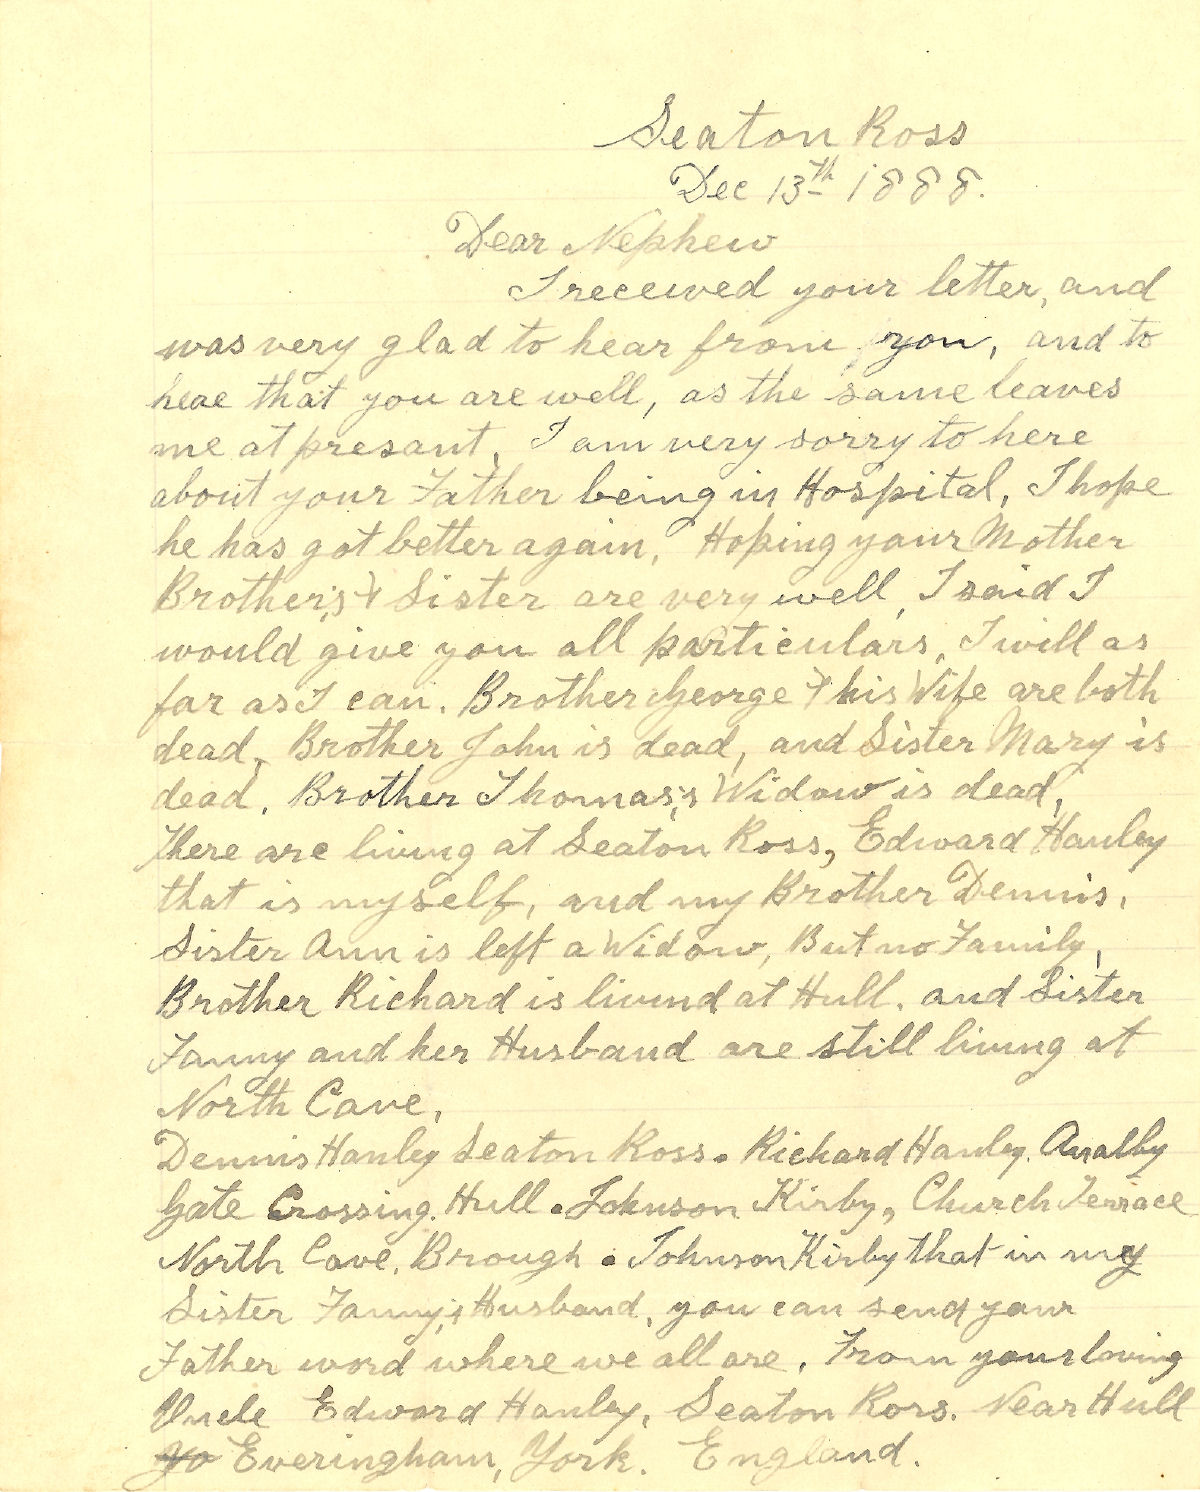 Seaton Ross
Dec 13th 1888.
Dear Nephew
I received your letter, and
was very glad to hear from you, and to
heae that you are well, as the same leaves
me at presant, I am very sorry to here
about your Father being in Hospital, I hope
he has got better again, Hoping your Mother
Brother,s & Sister are very well, I said I
would give you all particulars, I will as
far as I can. Brother George & his Wife are both
dead, Brother John is dead, and Sister Mary is
dead. Brother Thomas,s Widow is dead,
there are living at Seaton Ross, Edward Hanley
that is myself, and my Brother Dennis,
Sister Ann is left a Widow, But no Family,
Brother Richard is livind at Hull. and Sister
Fanny and her Husband are still living at
North Cave,
Dennis Hanley Seaton Ross. Richard Hanley. Analby
Gate Crossing. Hull. Johnson Kirby, Church Terrace
North Cave. Brough. Johnson Kirby that in my
Sister Fanny,s Husband, you can send your
Father word where we all are. From your loving
Uncle Edward Hanley, Seaton Ross. Near Hull
Yo Everingham, York. England.